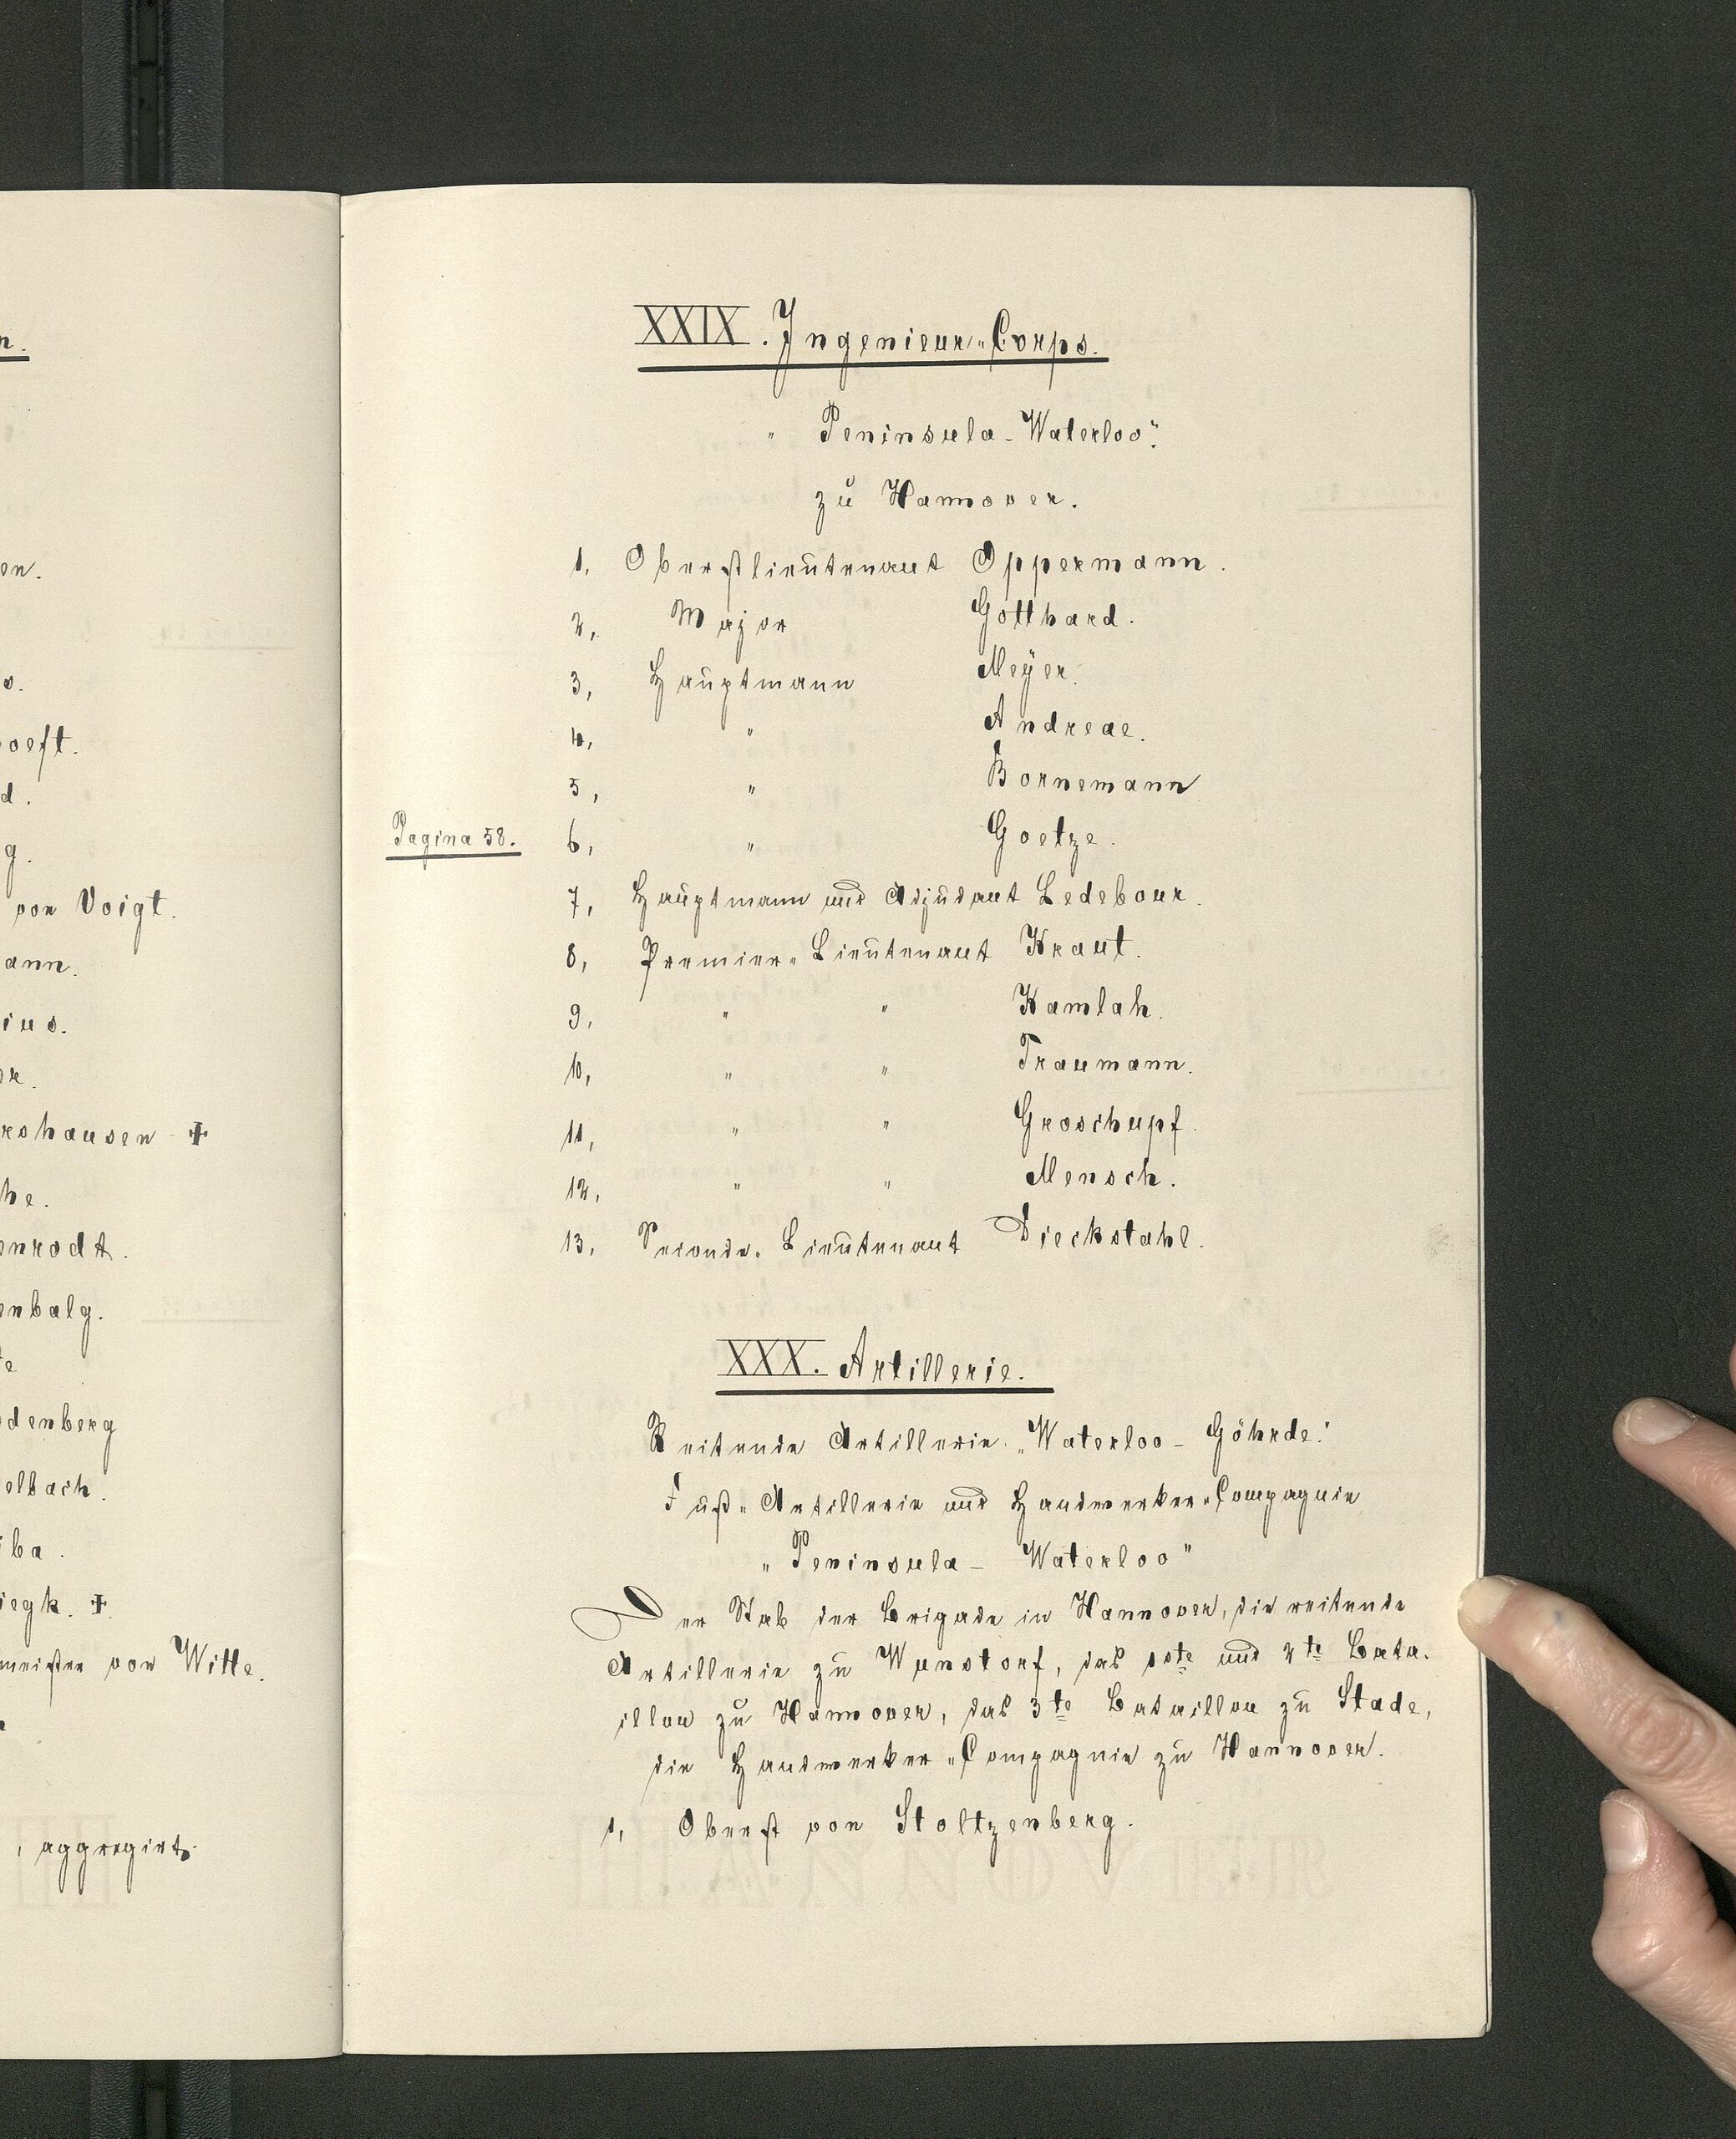 n.
en.
s.
oeft.
d.
g.
von Voigt.
ann.
ius.
er.
rshausen ✝
he.
enrodt.
enbalg.
te
denberg
elbach.
iba.
iegk. ✝.
meister von Witte.
, aggregirt.
XXIX. Ingenieur-Corps.
" Peninsula - Waterloo".
zu Hannover.
1, Oberstlieutenant Oppermann.
2, Major Gotthard.
3, Hauptmann Meÿer.
4, " Andreae.
5, " Bornemann
Pagina 58. 6, " Goetze.
7, Hauptmann und Adjudant Ledebour.
8, Premier-Lieutenant Kraut.
9, " " Kamlah.
10, " " Traumann.
11, " " Groschupf.
12, " " Mensch.
13, Seconde-Lieutenant Dieckstahl.
XXX. Artillerie.
Reitende Artillerie. „Waterloo - Göhrde."
Fuß-Artillerie und Handwerker-Compagnie
„Peninsula - Waterloo"
Der Stab der Brigade in Hannover, die reitende
Artillerie zu Wunstorf, das 1ste und 2te Bata-
illon zu Hannover, das 3te Bataillon zu Stade,
die Handwerker-Compagnie zu Hannover.
1, Oberst von Stoltzenberg.